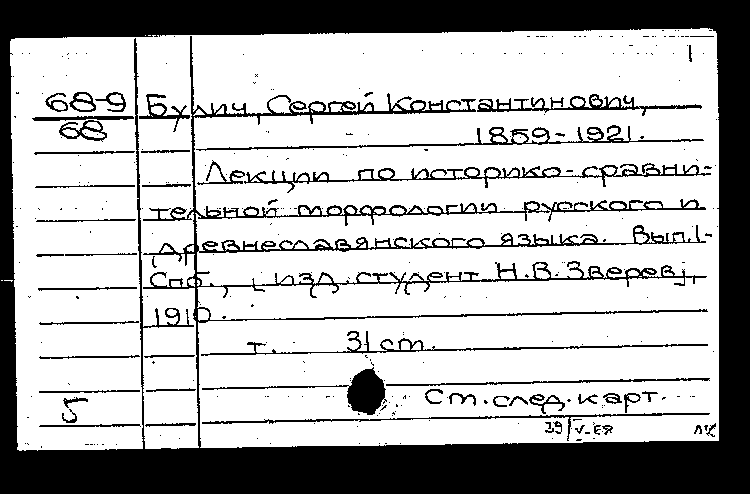 1
68-9 Булич, Сергей Константинович,
68 1859-1921.
Лекции по историко-сравни-
тельной морфологии русского и
древнеславянского языка. Вып.1-
Спб., [изд. студент Н.В. Зверев],
1910.
т. 31 см.
5 См. след. карт.
29/V-